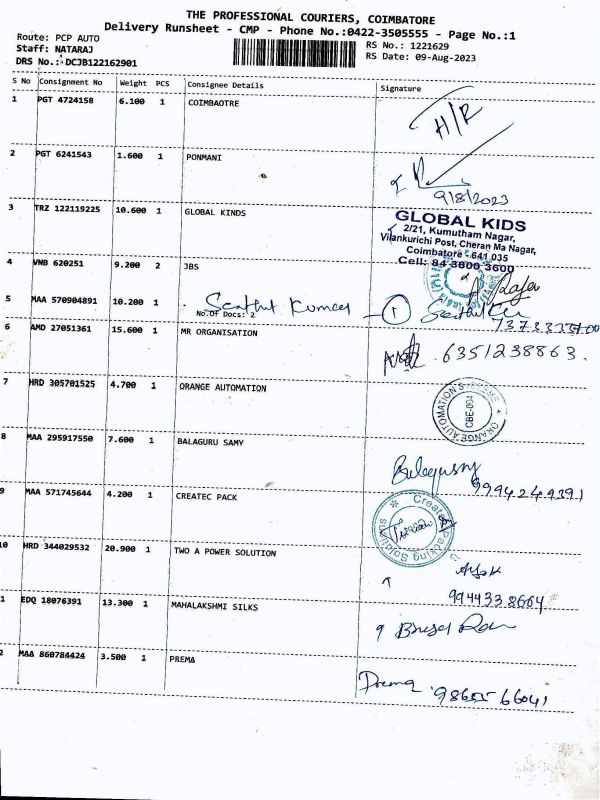 THE PROFESSIONAL COURIERS, COIMBATORE
Delivery Runsheet - CMP - Phone No.:0422-3505555 - Page No.:1
Route: PCP AUTO
Staff: NATARAJ
DRS No.: DCJB122162901
RS No.: 1221629
RS Date: 09-Aug-2023
S No Consignment No Weight PCS Consignee Details Signature
1 PGT 4724158 6.100 1 COIMBAOTRE
H/R
2 PGT 6241543 1.600 1 PONMANI
9/8/2023
3 TRZ 122119225 10.600 1 GLOBAL KINDS
GLOBAL KIDS
2/21, Kumutham Nagar,
Vilankurichi Post, Cheran Ma Nagar,
Coimbatore - 641 035
Cell: 84 3800 3600
4 VNB 620251 9.200 2 JBS
5 MAA 570904891 10.200 1 Senthil Kumar
No.Of Docs: 2
1
6 AMD 27051361 15.600 1 MR ORGANISATION
6351238863.
7 HRD 305701525 4.700 1 ORANGE AUTOMATION
ORANGE AUTOMATION
CBE-004
8 MAA 295917550 7.600 1 BALAGURU SAMY
Balagusmy
9994249391
9 MAA 571745644 4.200 1 CREATEC PACK
Createc Packing Solutions
10 HRD 344029532 20.900 1 TWO A POWER SOLUTION
Ashok
9944338664
1 EDQ 18076391 13.300 1 MAHALAKSHMI SILKS
2 MAA 860784424 3.500 1 PREMA
Prema 98655 66041